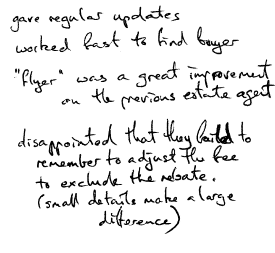 gave regular updates
worked fast to find buyer
"flyer" was a great improvement
on the previous estate agent
disappointed that they failed to
remember to adjust the fee
to exclude the rebate.
(small details make a large
difference)